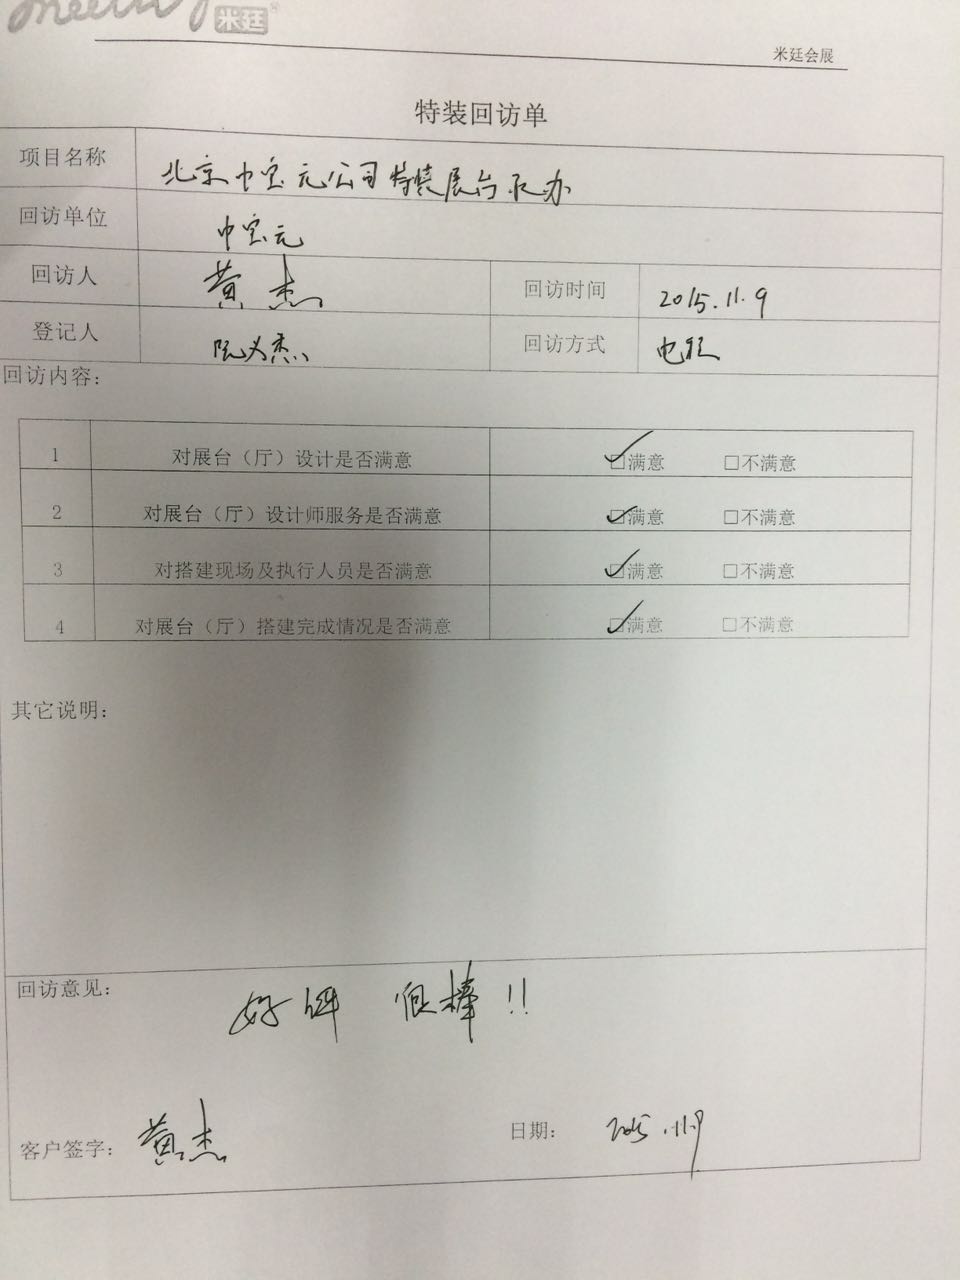 米廷®
米廷会展
特装回访单
项目名称 北京中宝元公司特装展台承办
回访单位 中宝元
回访人 黄杰 回访时间 2015.11.9
登记人 杰 回访方式 电话
回访内容：
1 对展台（厅）设计是否满意 ☑满意 □不满意
2 对展台（厅）设计师服务是否满意 ☑满意 □不满意
3 对搭建现场及执行人员是否满意 ☑满意 □不满意
4 对展台（厅）搭建完成情况是否满意 ☑满意 □不满意
其它说明：
回访意见： 好 很棒!!
客户签字： 黄杰 日期： 2015.11.9